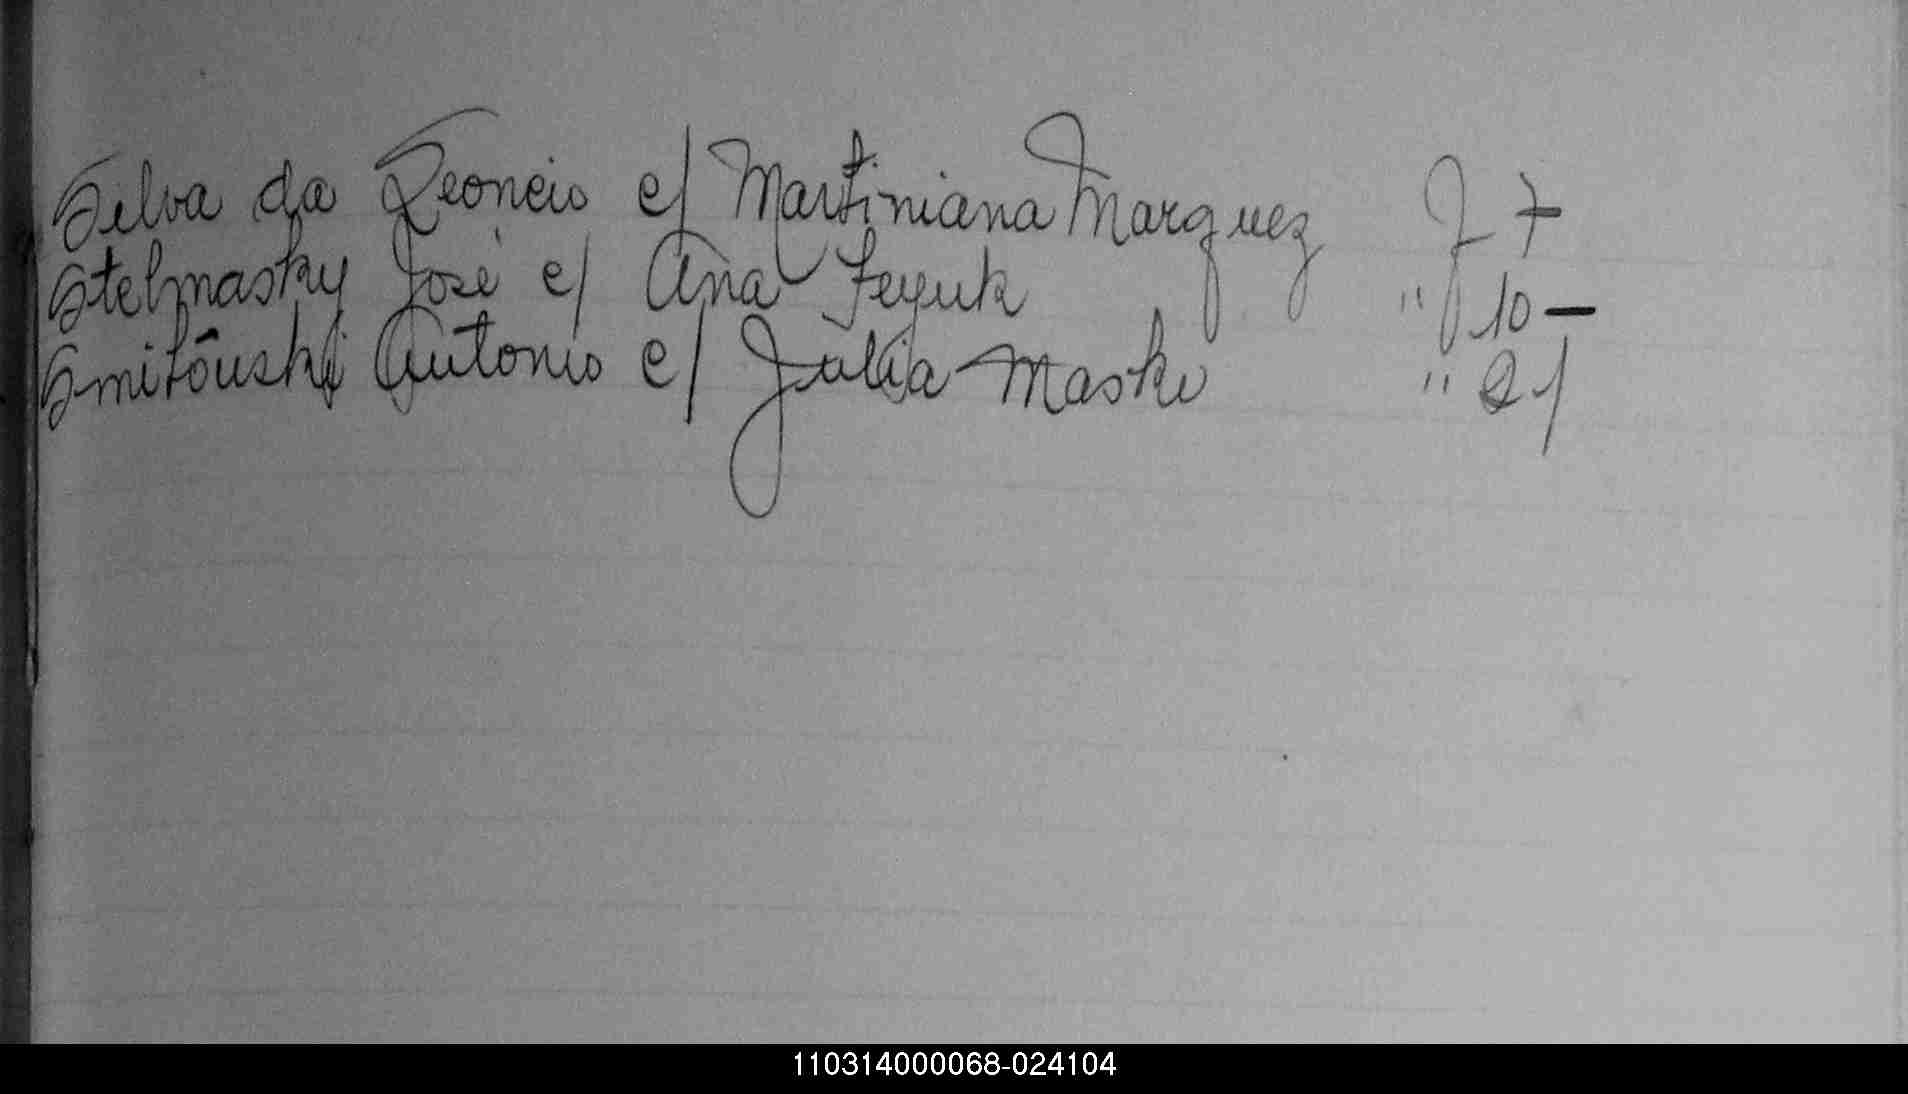 Silva da Leoncio c/ Martiniana Marquez f 7
Stelmasky José c/ Ana Feyuk " 10 —
Smitouski Antonio c/ Julia Maske " 21
110314000068-024104